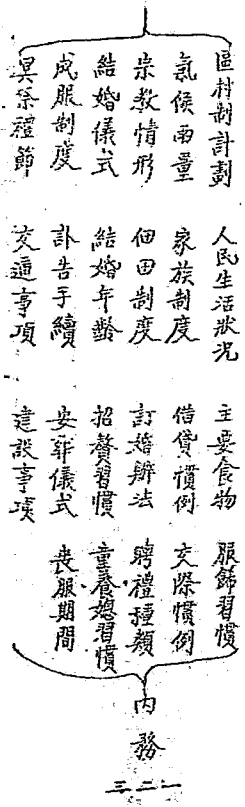 區村制計劃 人民生活狀况 主要食物 服飾習慣
氣候雨量 家族制度 借貸慣例 交際慣例
宗教情形 佃田制度 訂婚辦法 聘禮種類
結婚儀式 結婚年齡 招贅習慣 童養媳習慣
成服制度 訃告手續 安葬儀式 喪服期間
冥祭禮節 交通事項 建設事項
內務